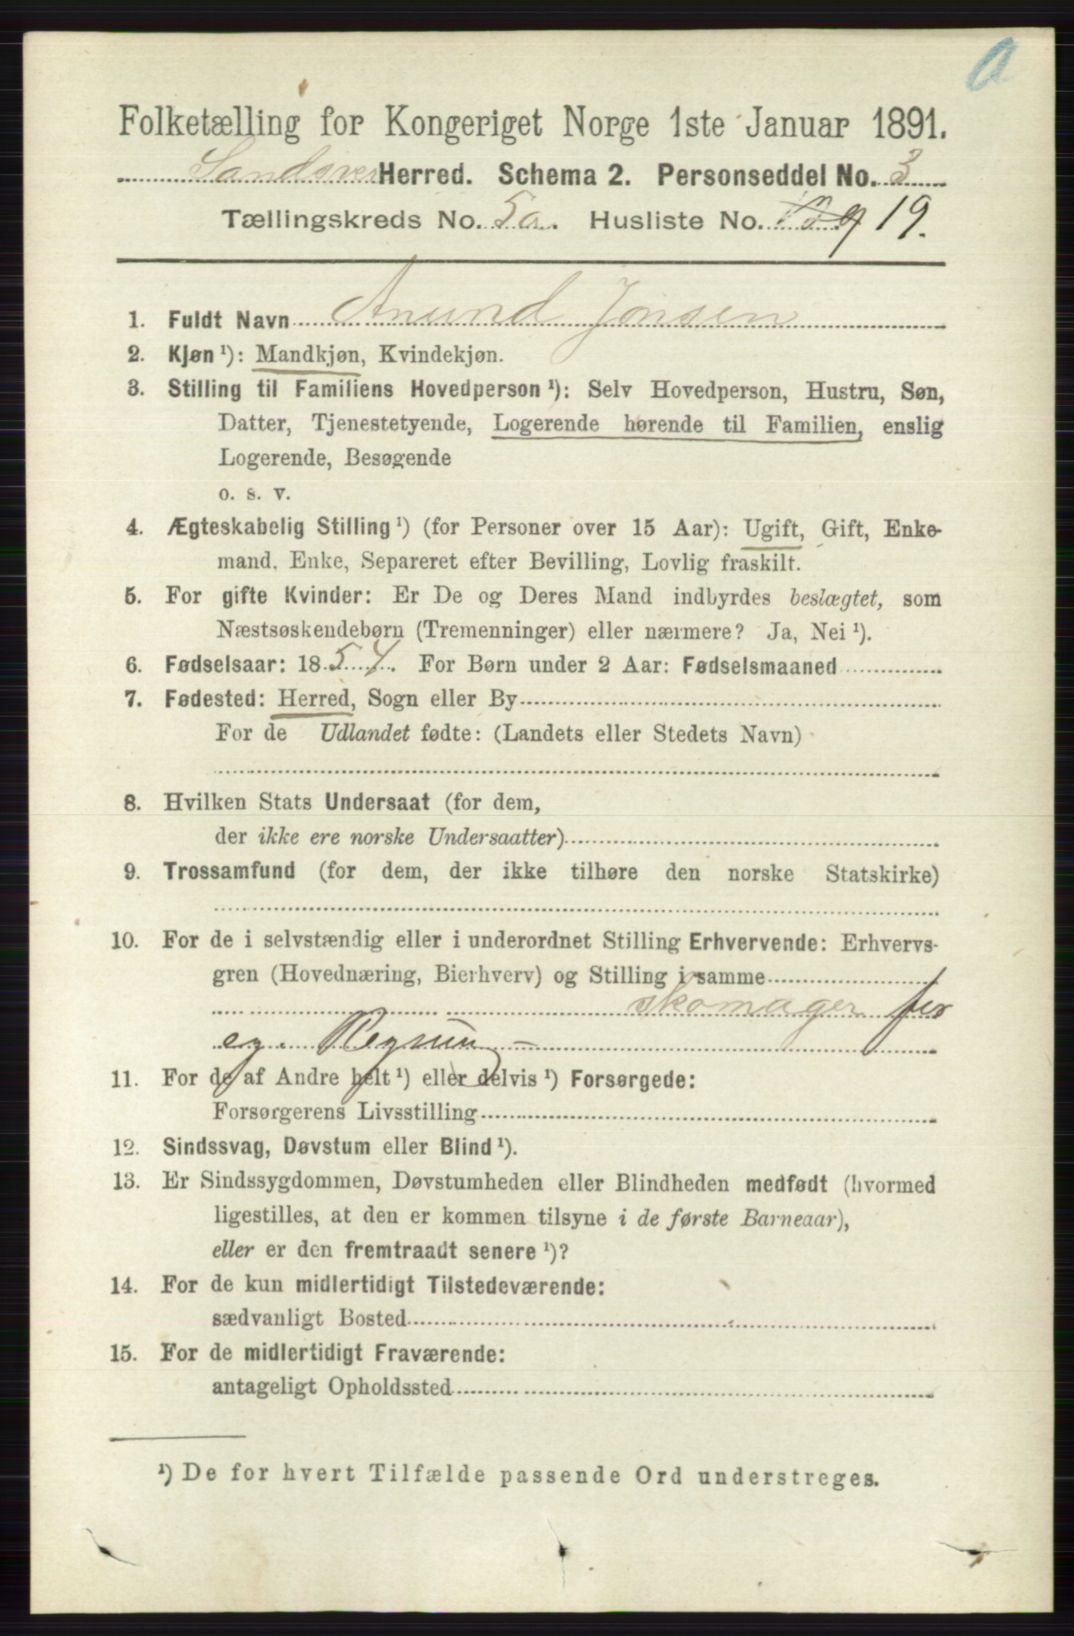 Folketælling for Kongeriget Norge 1ste Januar 1891.
Sandsver Herred. Schema 2. Personseddel No. 3
Tællingskreds No. 5a. Husliste No. 19.
1. Fuldt Navn Anund Jonsen
2. Kjøn ¹): Mandkjøn, Kvindekjøn.
3. Stilling til Familiens Hovedperson ¹): Selv Hovedperson, Hustru, Søn,
Datter, Tjenestetyende, Logerende hørende til Familien, enslig
Logerende, Besøgende
o. s. v.
4. Ægteskabelig Stilling ¹) (for Personer over 15 Aar): Ugift, Gift, Enke-
mand, Enke, Separeret efter Bevilling, Lovlig fraskilt.
5. For gifte Kvinder: Er De og Deres Mand indbyrdes beslægtet, som
Næstsøskendebørn (Tremenninger) eller nærmere? Ja, Nei ¹).
6. Fødselsaar: 1854. For Børn under 2 Aar: Fødselsmaaned
7. Fødested: Herred, Sogn eller By
For de Udlandet fødte: (Landets eller Stedets Navn)
8. Hvilken Stats Undersaat (for dem,
der ikke ere norske Undersaatter)
9. Trossamfund (for dem, der ikke tilhøre den norske Statskirke)
10. For de i selvstændig eller i underordnet Stilling Erhvervende: Erhvervs-
gren (Hovednæring, Bierhverv) og Stilling i samme
skomager for
eg. Regning
11. For de af Andre helt ¹) eller delvis ¹) Forsørgede:
Forsørgerens Livsstilling
12. Sindssvag, Døvstum eller Blind ¹).
13. Er Sindssygdommen, Døvstumheden eller Blindheden medfødt (hvormed
ligestilles, at den er kommen tilsyne i de første Barneaar),
eller er den fremtraadt senere ¹)?
14. For de kun midlertidigt Tilstedeværende:
sædvanligt Bosted
15. For de midlertidigt Fraværende:
antageligt Opholdssted
¹) De for hvert Tilfælde passende Ord understreges.